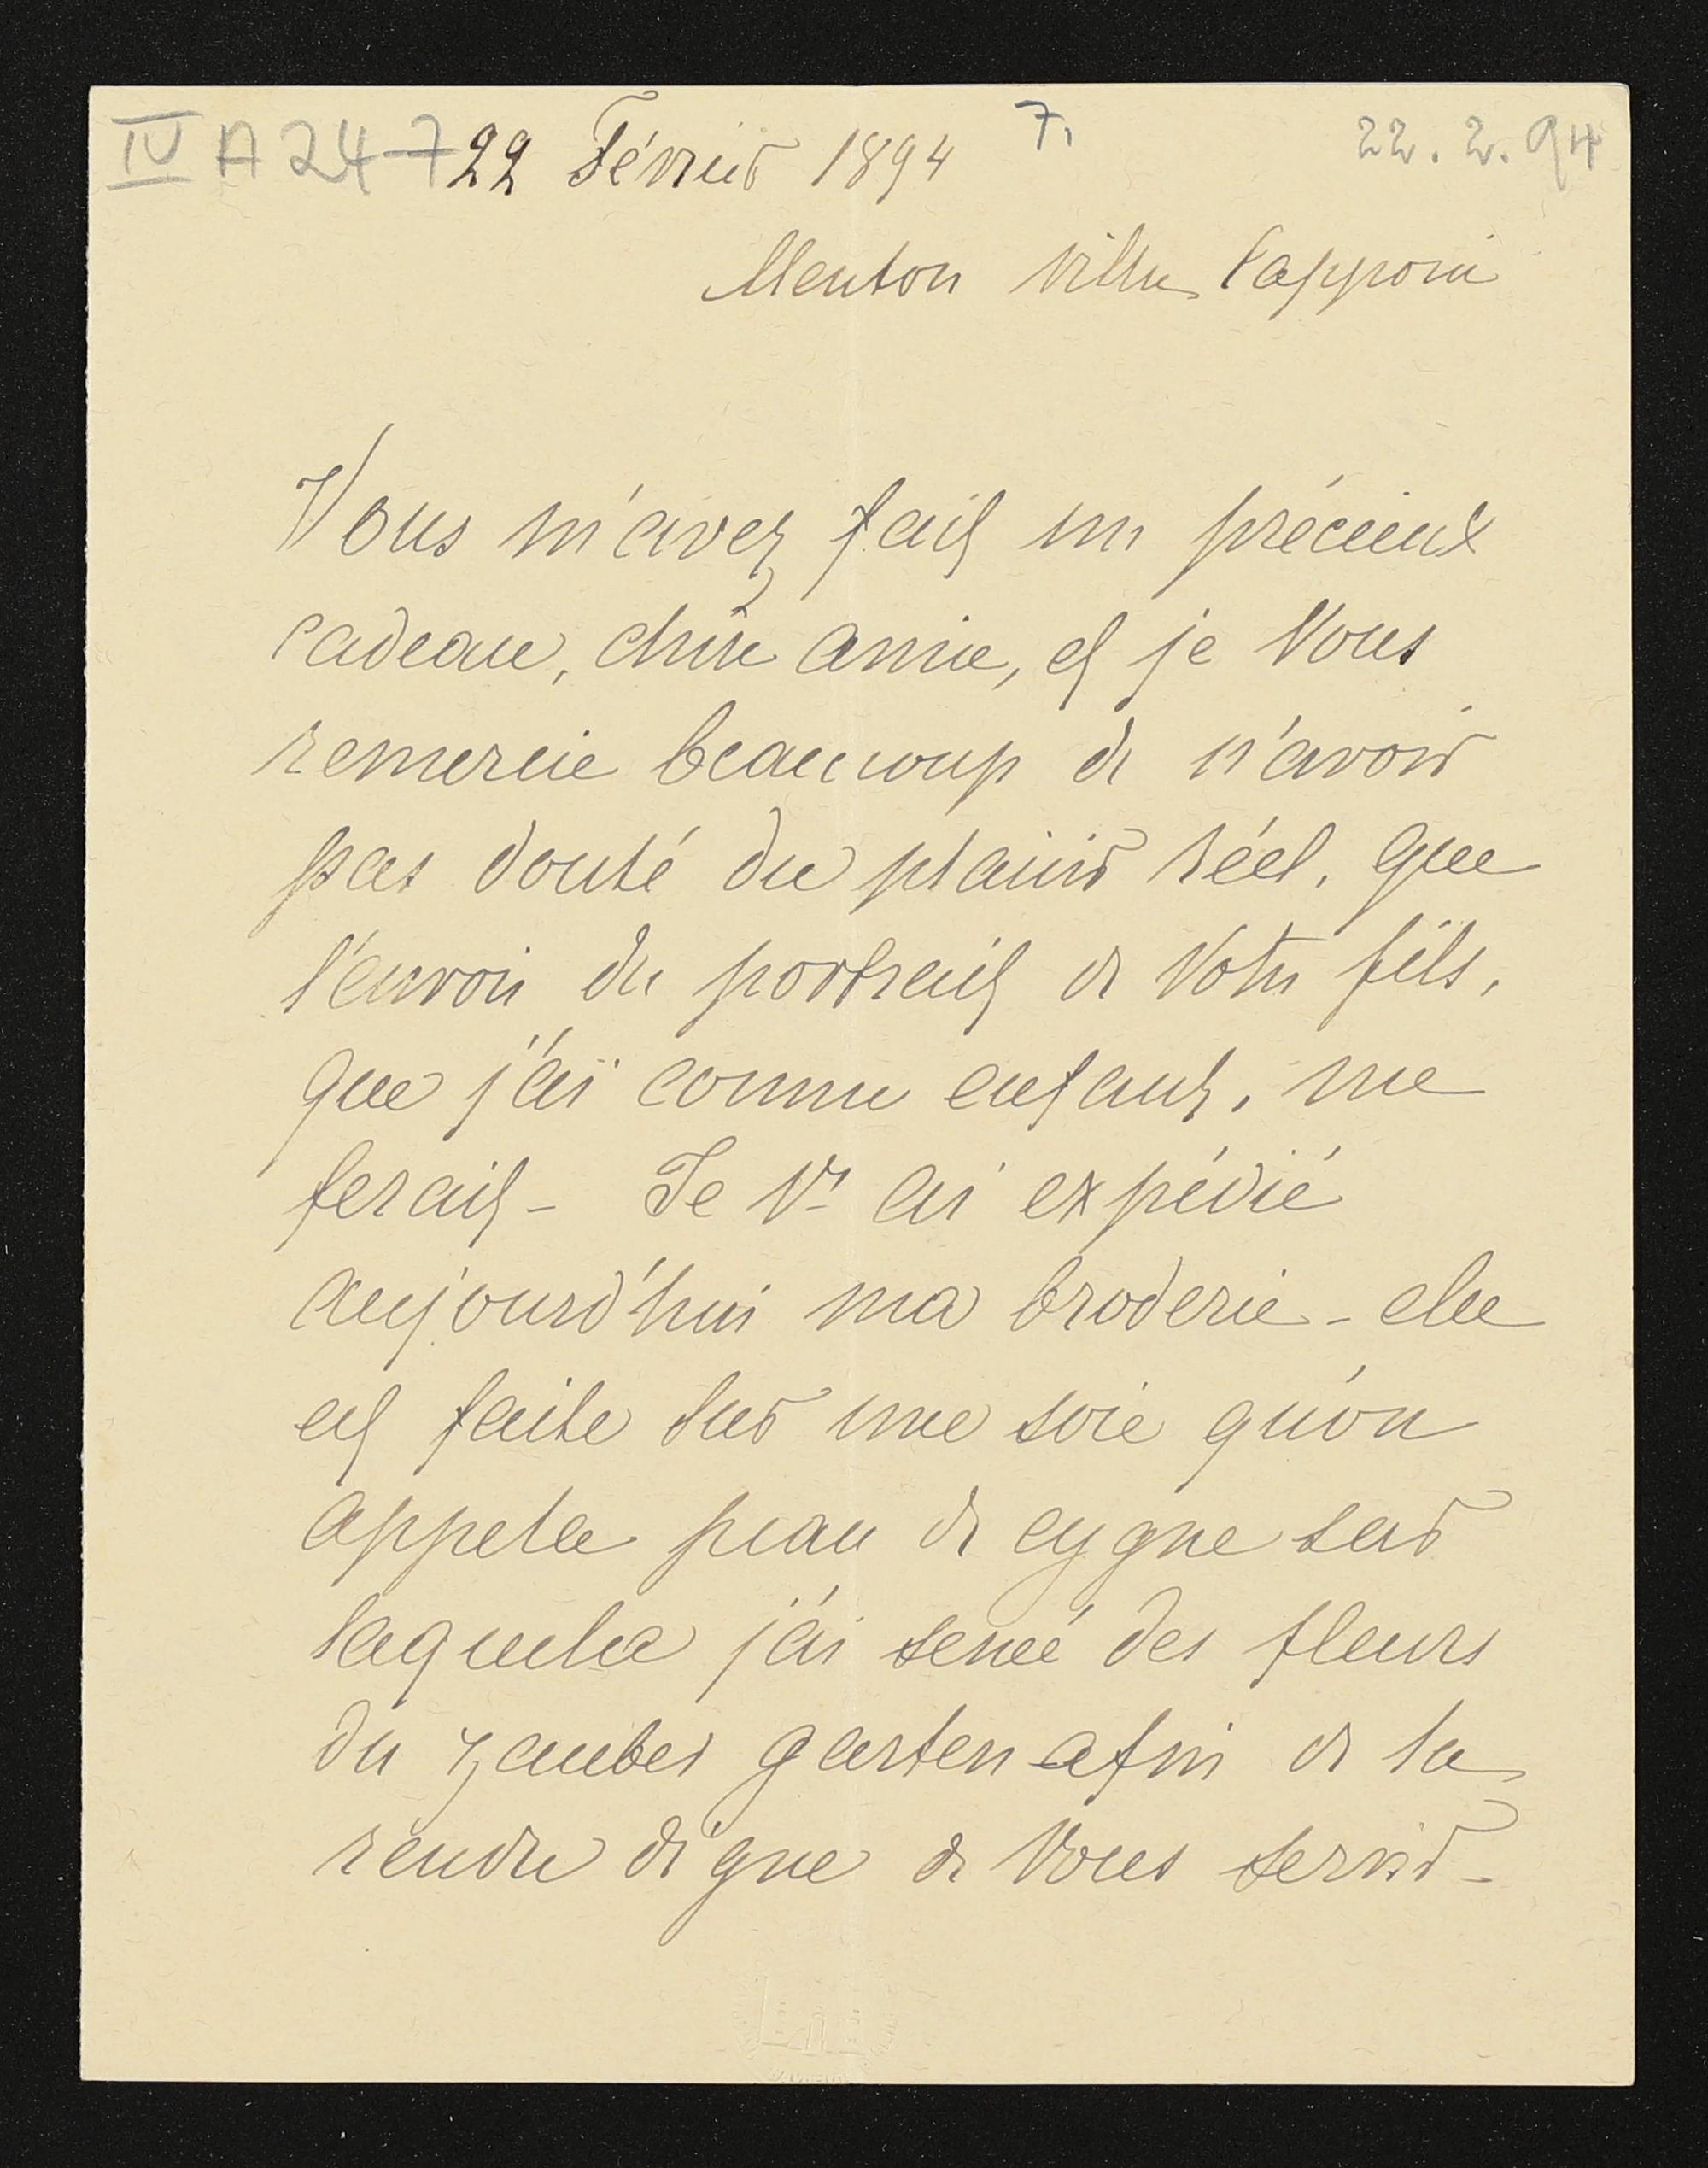 IV A 24-7 22 Février 1894 7, 22.2.94
Menton villa
Vous m'avez fait un précieux
cadeau, chère amie, et je Vous
remercie beaucoup de n'avoir
pas douté du plaisir réel, que
l'envoi du portrait de Votre fils,
que j'ai connu enfant, me
ferait - Je Vs ai expédié
aujourd'hui ma broderie - elle
est faite sur une soie qu'on
appelle peau de cygne sur
laquelle j'ai semé des fleurs
du zauber garten afin de la
rendre digne de Vous servir -